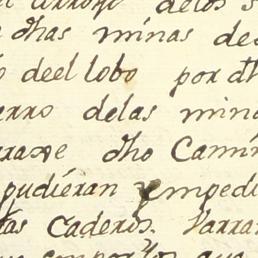 arroyo delos
dhas minas de
deel lobo por dh
erro delas mina
rraxe dho Camin
pudieran ympedi
tas Caderos. Varra